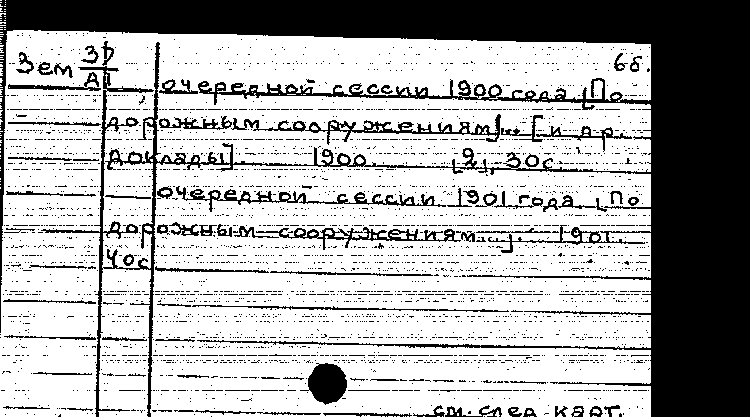 Зем 3D/A1 6б.
очередной сессии 1900 года [По
дорожным сооружениям]... [и др.
доклады]. 1900. [2], 30с.
очередной сессии 1901 года. [По
дорожным сооружениям...]. 1901.
40с
см. след. карт.